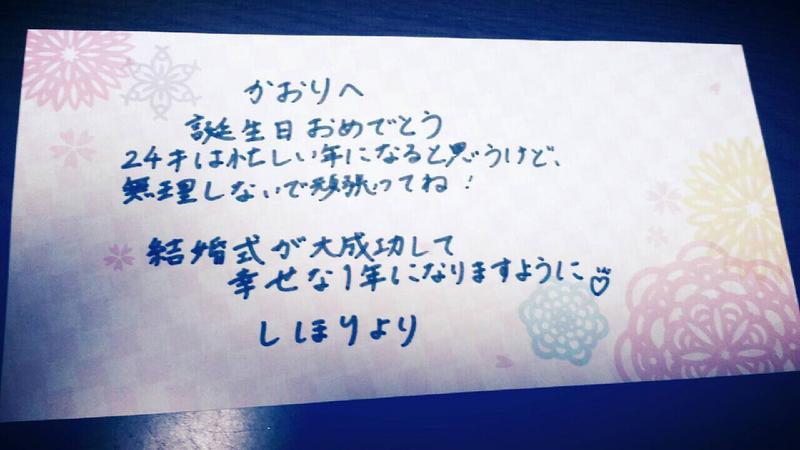 かおりへ
誕生日おめでとう
24才は忙しい年になると思うけど、
無理しないで頑張ってね！
結婚式が大成功して
幸せな1年になりますように♡
しほりより